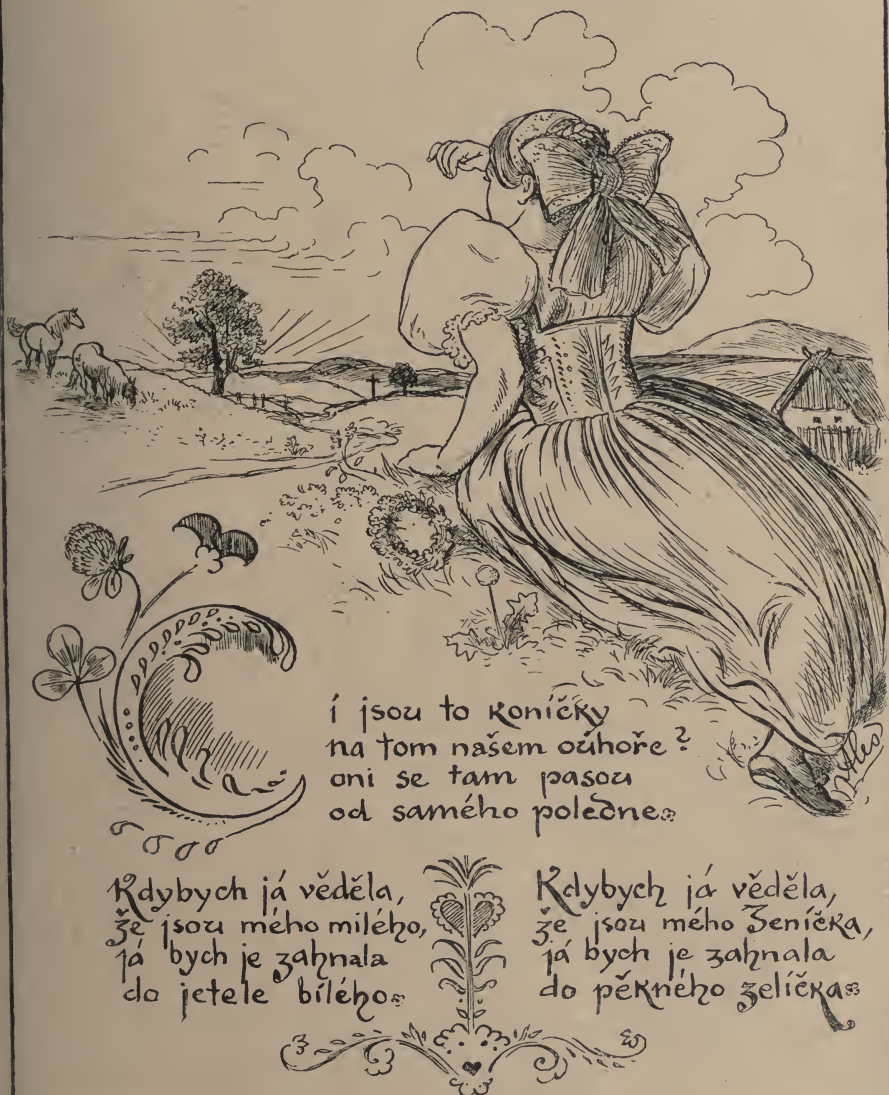 Čí jsou to koníčky
na tom našem oúhoře?
oni se tam pasou
od samého poledne
Kdybych já věděla,
že jsou mého milého,
já bych je zahnala
do jetele bílého
Kdybych já věděla,
že jsou mého Jeníčka,
já bych je zahnala
do pěkného zelíčka